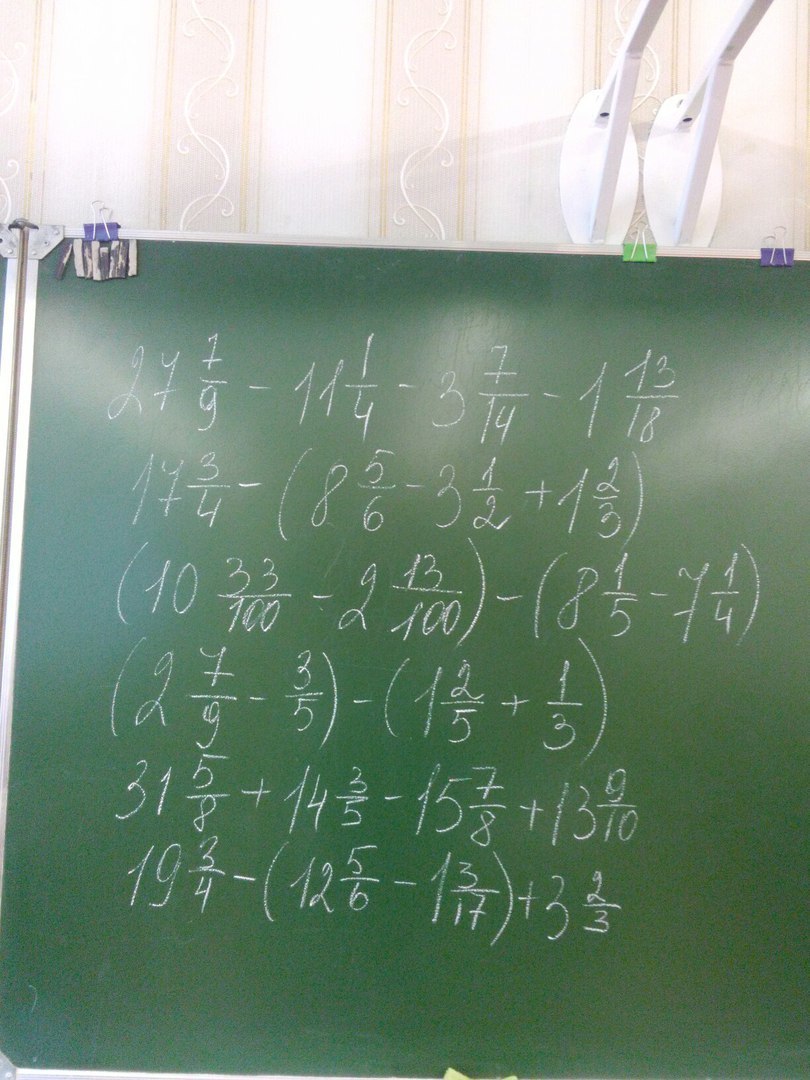 27 7/9 - 11 1/4 - 3 7/14 - 1 13/18
17 3/4 - (8 5/6 - 3 1/2 + 1 2/3)
(10 33/100 - 2 13/100) - (8 1/5 - 7 1/4)
(2 7/9 - 3/5) - (1 2/5 + 1/3)
31 5/8 + 14 3/5 - 15 7/8 + 13 9/10
19 3/4 - (12 5/6 - 1 3/17) + 3 2/3